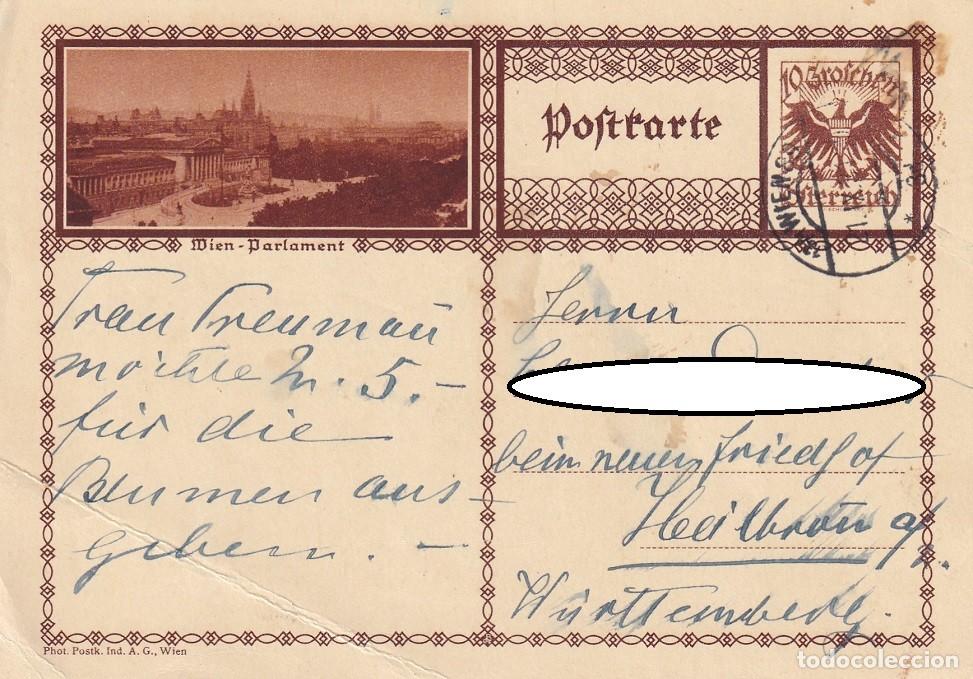 Postkarte
10 Groschen
Österreich
WIEN
Wien-Parlament
Frau Treumann
möchte M. 5.-
für die
Blumen aus-
geben. -
Herrn
beim neuen Friedhof
Heilbronn a/N.
Württemberg.
Phot. Postk. Ind. A. G., Wien
todocoleccion